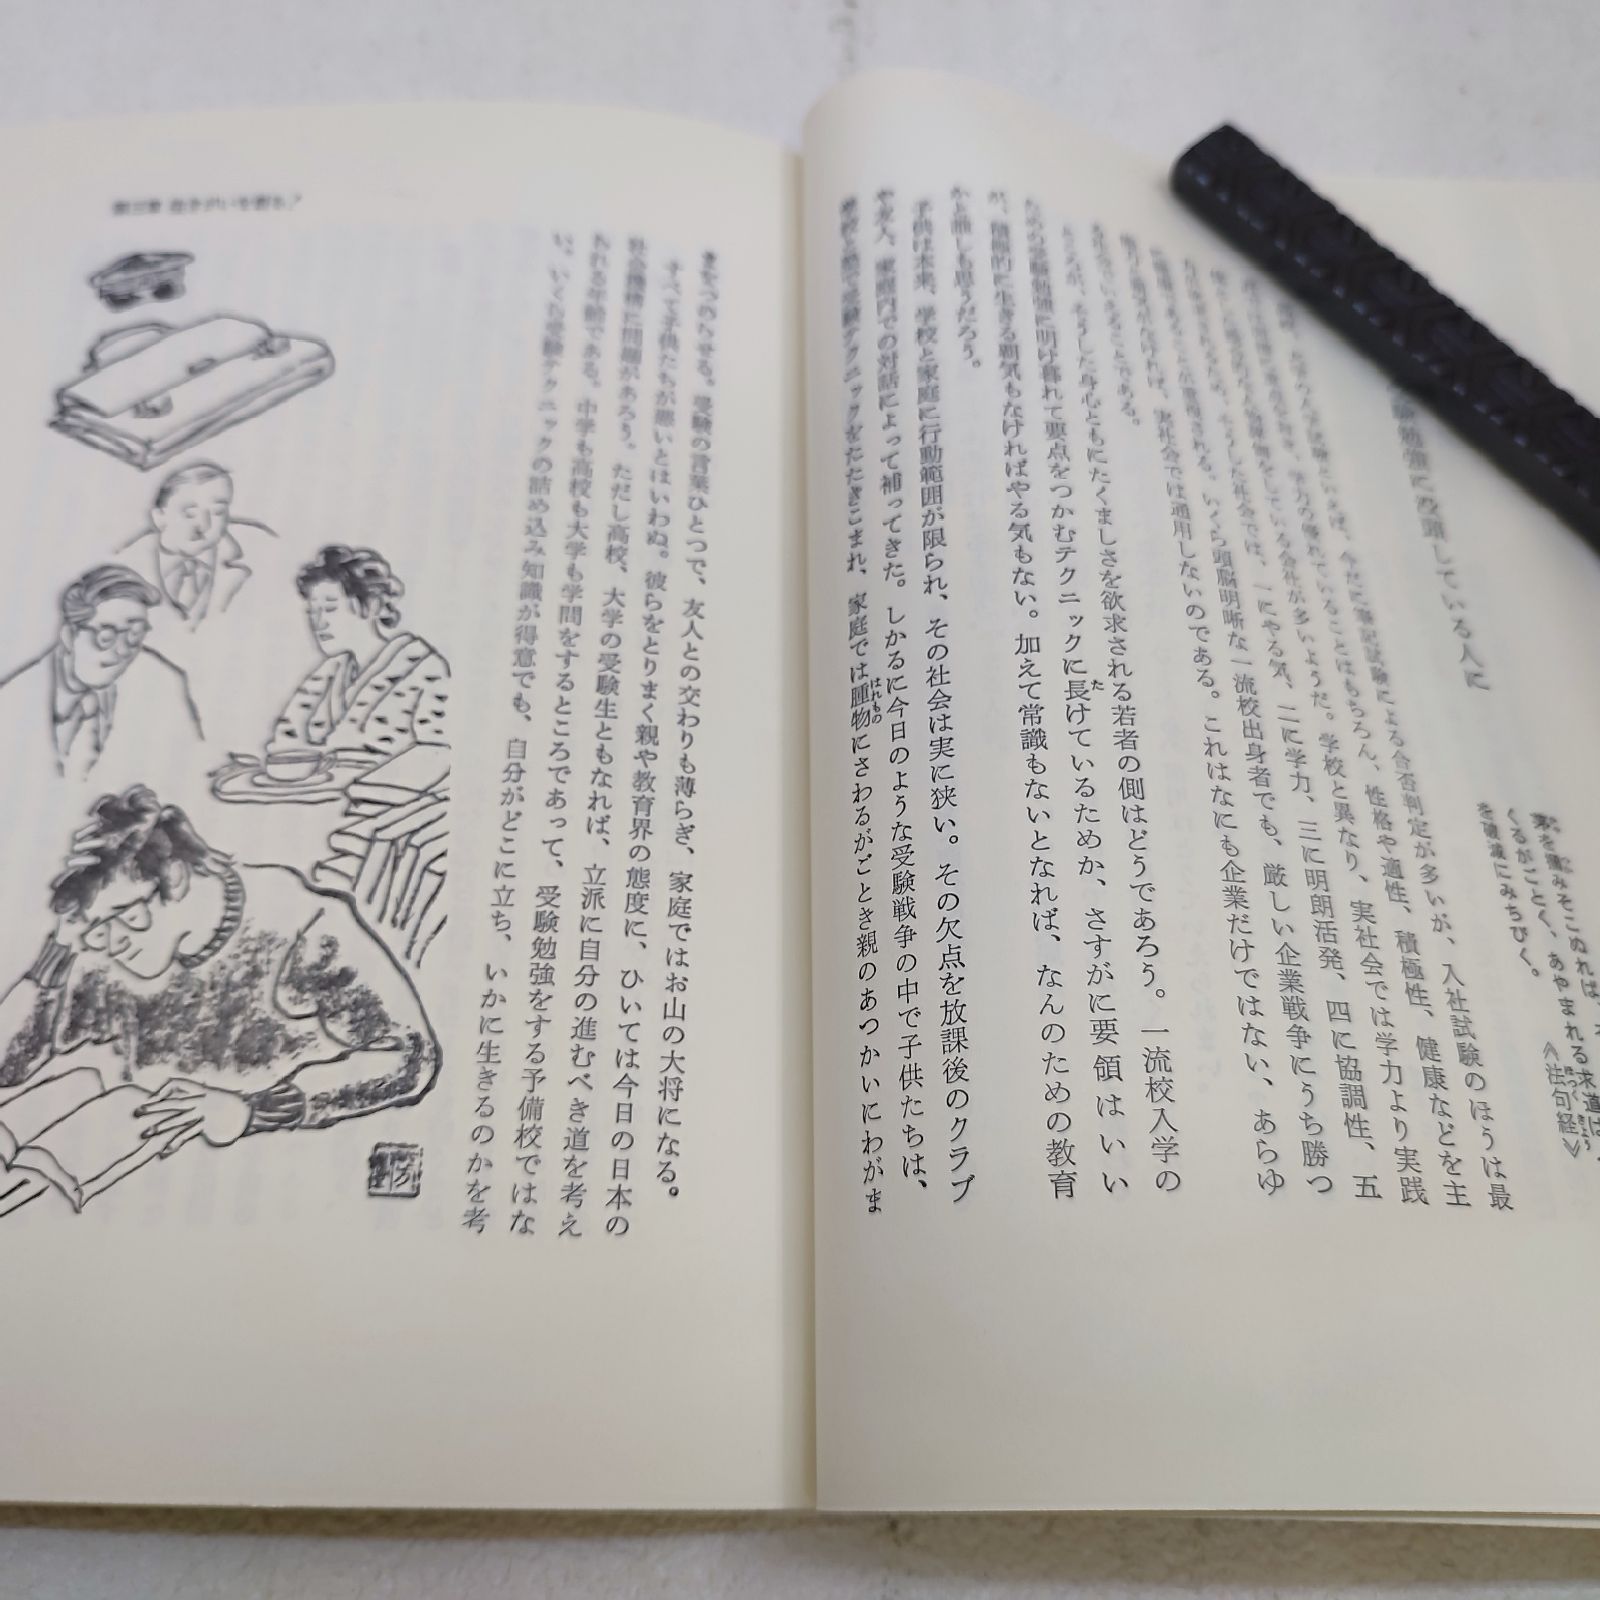 験勉強に没頭している人に
くるがごとく、あやまれる求道は、
を破滅にみちびく。
《法句経》
入社試験による合否判定が多いが、入社試験のほうは最
はもちろん、性格や適性、積極性、健康などを主
学校と異なり、実社会では学力より実践
一にやる気、二に学力、三に明朗活発、四に協調性、五
いくら頭脳明晰な一流校出身者でも、厳しい企業戦争にうち勝つ
実社会では通用しないのである。これはなにも企業だけではない、あらゆ
ることである。
ところが、そうした身心ともにたくましさを欲求される若者の側はどうであろう。一流校入学の
ための受験勉強に明け暮れて要点をつかむテクニックに長けているためか、さすがに要領はいい
が、積極的に生きる覇気もなければやる気もない。加えて常識もないとなれば、なんのための教育
かと誰しも思うだろう。
子供は本来、学校と家庭に行動範囲が限られ、その社会は実に狭い。その欠点を放課後のクラブ
や友人、家庭内での対話によって補ってきた。しかるに今日のような受験戦争の中で子供たちは、
学校と塾で受験テクニックをたたきこまれ、家庭では腫物にさわるがごとき親のあつかいにわがま
まをつのらせる。受験の言葉ひとつで、友人との交わりも薄らぎ、家庭ではお山の大将になる。
すべて子供たちが悪いとはいわぬ。彼らをとりまく親や教育界の態度に、ひいては今日の日本の
社会機構に問題があろう。ただし高校、大学の受験生ともなれば、立派に自分の進むべき道を考え
られる年齢である。中学も高校も大学も学問をするところであって、受験勉強をする予備校ではな
い。いくら受験テクニックの詰め込み知識が得意でも、自分がどこに立ち、いかに生きるのかを考